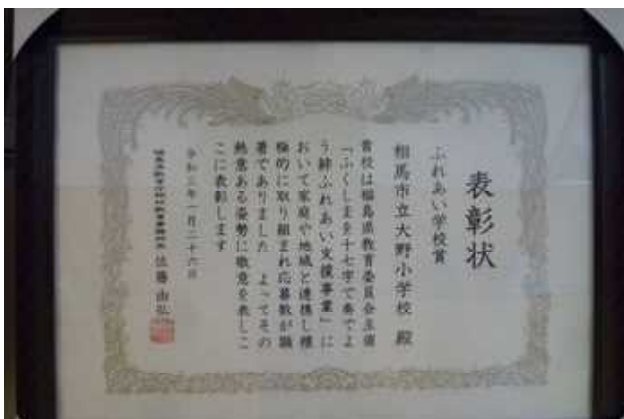 表彰状
ふれあい学校賞
相馬市立大野小学校 殿
貴校は福島県教育委員会主催
「ふくしまを十七字で奏でよ
う絆ふれあい支援事業」に
おいて家庭や地域と連携し積
極的に取り組まれ応募数が顕
著でありました よってその
熱意ある姿勢に敬意を表しこ
こに表彰します
令和三年一月二十六日
佐藤 由弘